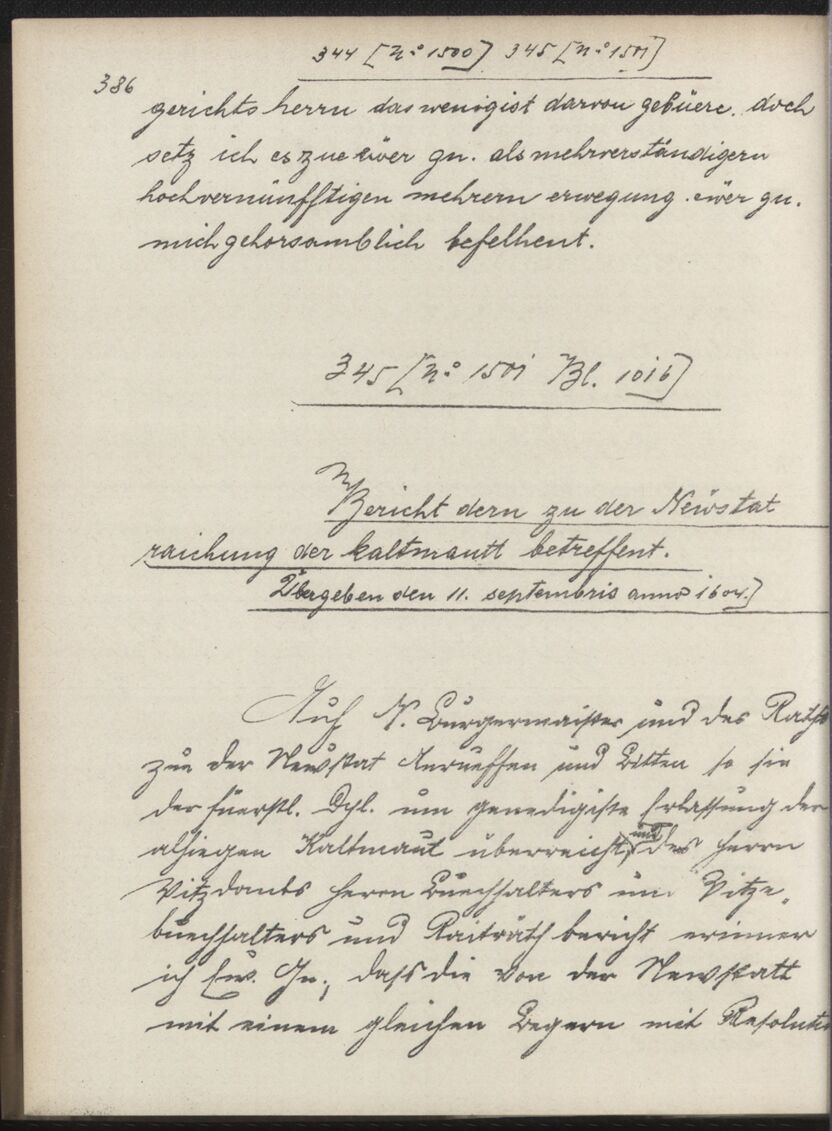 344 [N° 1500] 345 [N° 1501]
386
gerichts herrn das wenigist darvon gebüere. doch
setz ich es zue ewer gn. als mehrverständigern
hochvernünfftigen mehrern erwegung. ewer gn.
mich gehorsamblich befelhent.
345 [N° 1501 Bl. 101b]
Bericht dern zu der Neüstat
raichung der kaltmautt betreffent.
Übergeben den 11. septembris anno 1604.]
Auf N. Burgermaister und des Raths
zue der Newstat Anrueffen und Bitten so sie
der fürstl. Dhl. um genedigiste Erlassung der
alhiegen Kaltmaut überreicht, und des Herrn
Vitzdombs Herrn Buechhalters und Vitze-
buechhalters und Raiträth bericht erinner
ich Ew. Gn., daß die von der Newstatt
mit einem gleichen Begern mit Resoluti